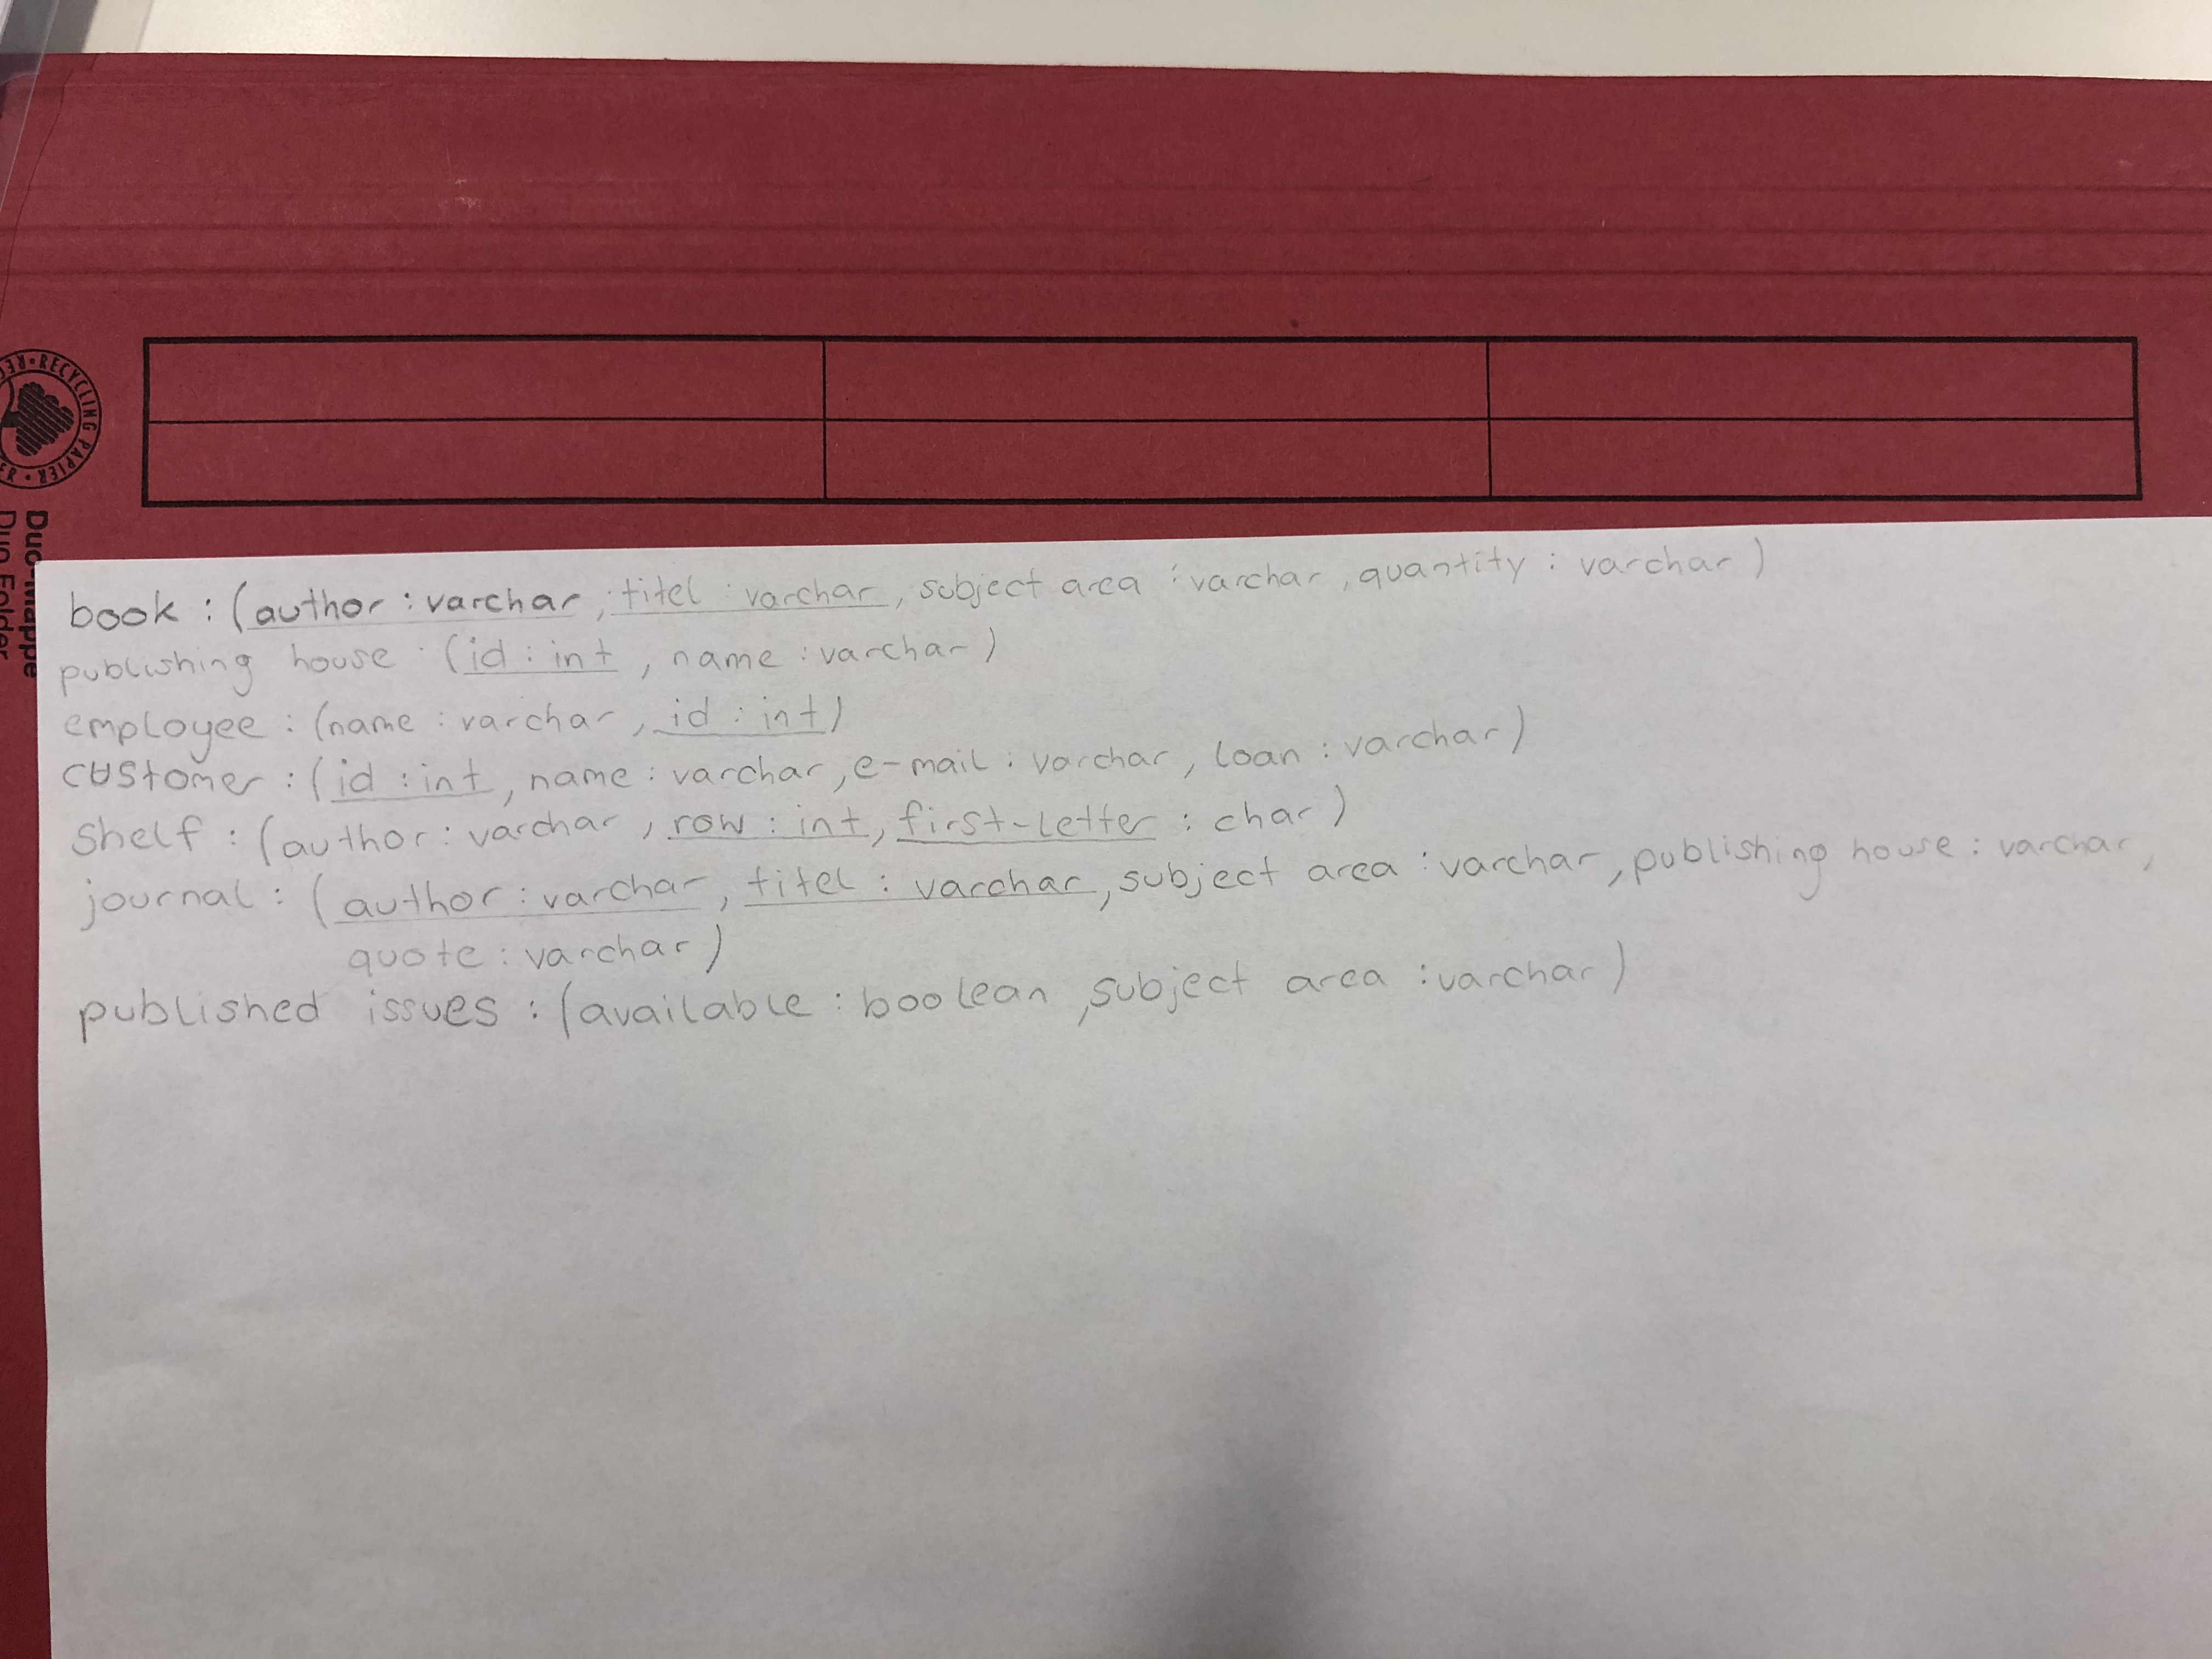 Duo-Mappe
Duo Folder
RECYCLING PAPIER
book : (author : varchar, titel : varchar, subject area : varchar, quantity : varchar)
publishing house : (id : int, name : varchar)
employee : (name : varchar, id : int)
customer : (id : int, name : varchar, e-mail : varchar, loan : varchar)
Shelf : (author : varchar, row : int, first-letter : char)
journal : (author : varchar, titel : varchar, subject area : varchar, publishing house : varchar,
quote : varchar)
published issues : (available : boolean, subject area : varchar)